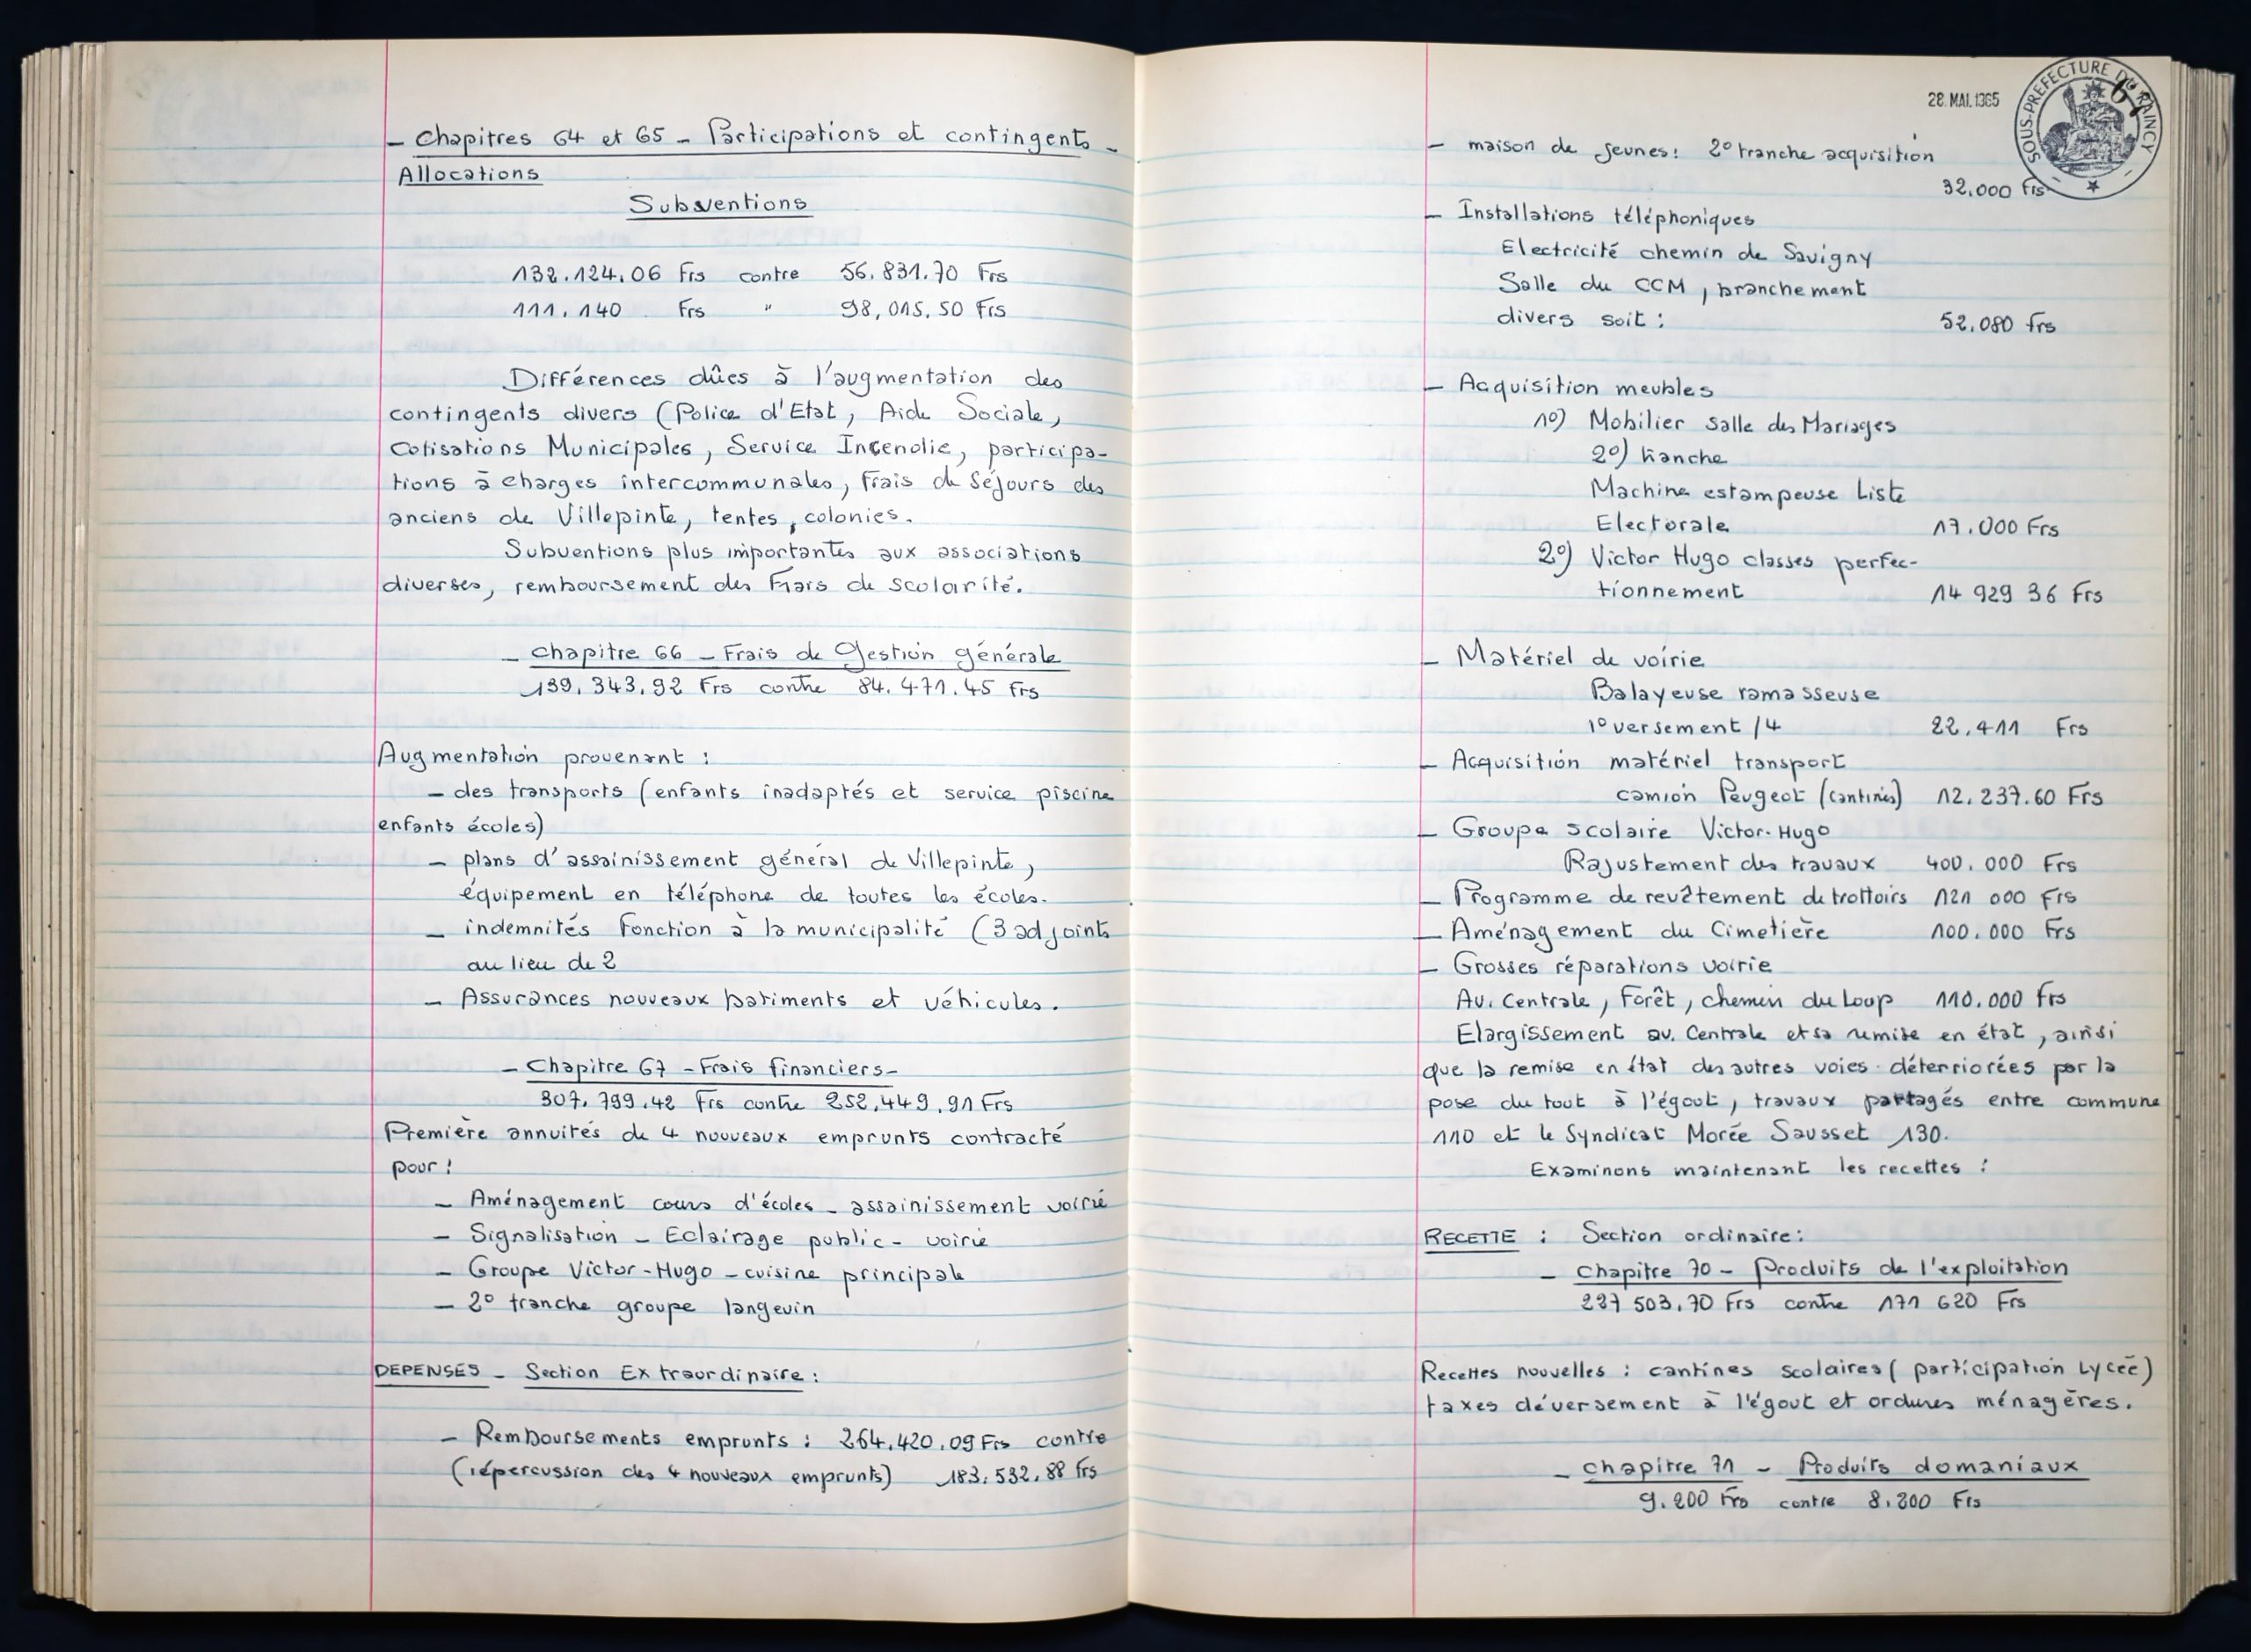 - Chapitres 64 et 65 - Participations et contingents -
Allocations
Subventions
132.124,06 Frs contre 56.831.70 Frs
111.140 Frs " 98,015,50 Frs
Différences dûes à l'augmentation des
contingents divers (Police d'Etat, Aide Sociale,
Cotisations Municipales, Service Incendie, participa-
tions à charges intercommunales, frais de Séjours des
anciens de Villepinte, tentes, colonies.
Subventions plus importantes aux associations
diverses, remboursement des frais de scolarité.
- Chapitre 66 - Frais de Gestion générale
139.343,92 Frs contre 84.471.45 frs
Augmentation provenant :
- des transports (enfants inadaptés et service piscine
enfants écoles)
- plans d'assainissement général de Villepinte,
équipement en téléphone de toutes les écoles.
- indemnités Fonction à la municipalité (3 adjoints
au lieu de 2
- Assurances nouveaux batiments et véhicules.
- Chapitre 67 - Frais financiers -
307.799.42 frs contre 252.449.91 Frs
Première annuités de 4 nouveaux emprunts contracté
pour :
- Aménagement cours d'écoles - assainissement voirie
- Signalisation - Eclairage public - voirie
- Groupe Victor-Hugo - cuisine principale
- 2° tranche groupe langevin
DEPENSES - Section Extraordinaire :
- Remboursements emprunts : 264.420,09 Frs contre
(répercussion des 4 nouveaux emprunts) 183.532,88 frs
28. MAI. 1965
SOUS-PREFECTURE DU RAINCY
- maison de jeunes : 2° tranche acquisition
32.000 frs
- Installations téléphoniques
Electricité chemin de Savigny
Salle du CCM, branchement
divers soit : 52.080 frs
- Acquisition meubles
1°) Mobilier salle des Mariages
2°) tranche
Machine estampeuse Liste
Electorale 17.000 Frs
2°) Victor Hugo classes perfec-
tionnement 14 929 36 Frs
- Matériel de voirie
Balayeuse ramasseuse
1° versement /4 22.411 Frs
- Acquisition matériel transport
camion Peugeot (cantines) 12.237.60 Frs
- Groupe scolaire Victor-Hugo
Rajustement des travaux 400.000 Frs
- Programme de revêtement de trottoirs 121 000 Frs
- Aménagement du Cimetière 100.000 Frs
- Grosses réparations voirie
Av. Centrale, Forêt, chemin du Loup 110.000 frs
Elargissement av. Centrale et sa remise en état, ainsi
que la remise en état des autres voies déterriorées par la
pose du tout à l'égout, travaux partagés entre commune
110 et le Syndicat Morée Sausset 130.
Examinons maintenant les recettes :
RECETTE : Section ordinaire :
- Chapitre 70 - Produits de l'exploitation
237 503.70 Frs contre 171 620 Frs
Recettes nouvelles : cantines scolaires (participation Lycée)
taxes déversement à l'égout et ordures ménagères.
- chapitre 71 - Produits domaniaux
9.200 Frs contre 8.200 Frs